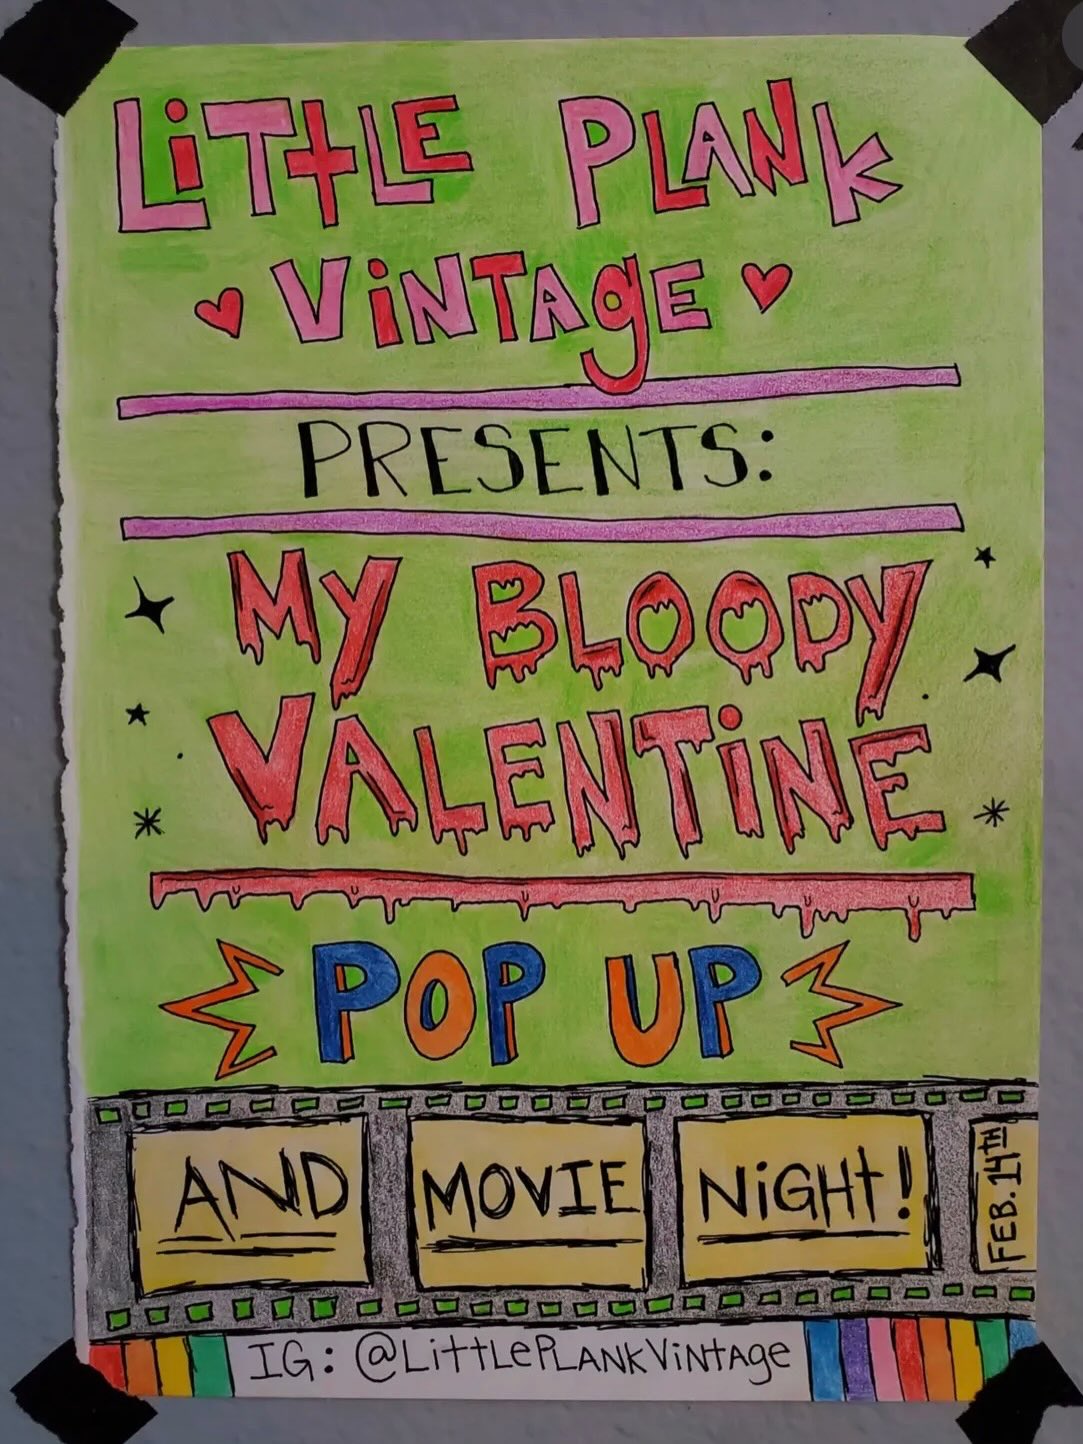 LiTTLE PLANK
ViNTAgE
PRESENTS:
MY BLOODY
VALENTiNE
POP UP
AND MOVIE NiGHt!
FEB. 14TH
IG: @LiTTLEPLANKViNTAge